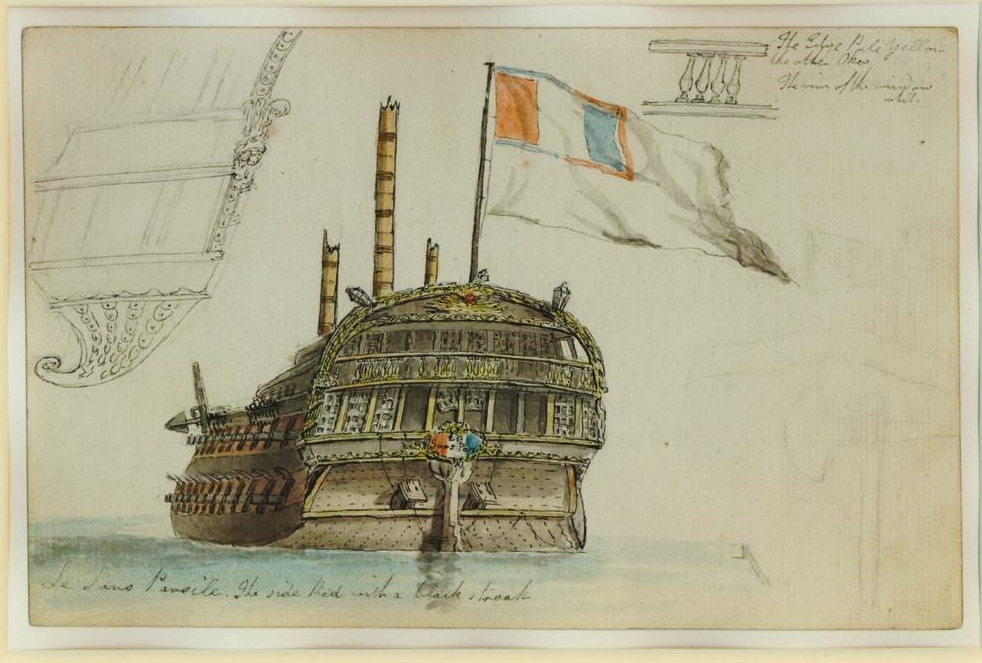 The Edge Pale Yellow
the other Oker
The rim of the window
white.
Sans P
Le Sans Pareile. The side Red with a black streak